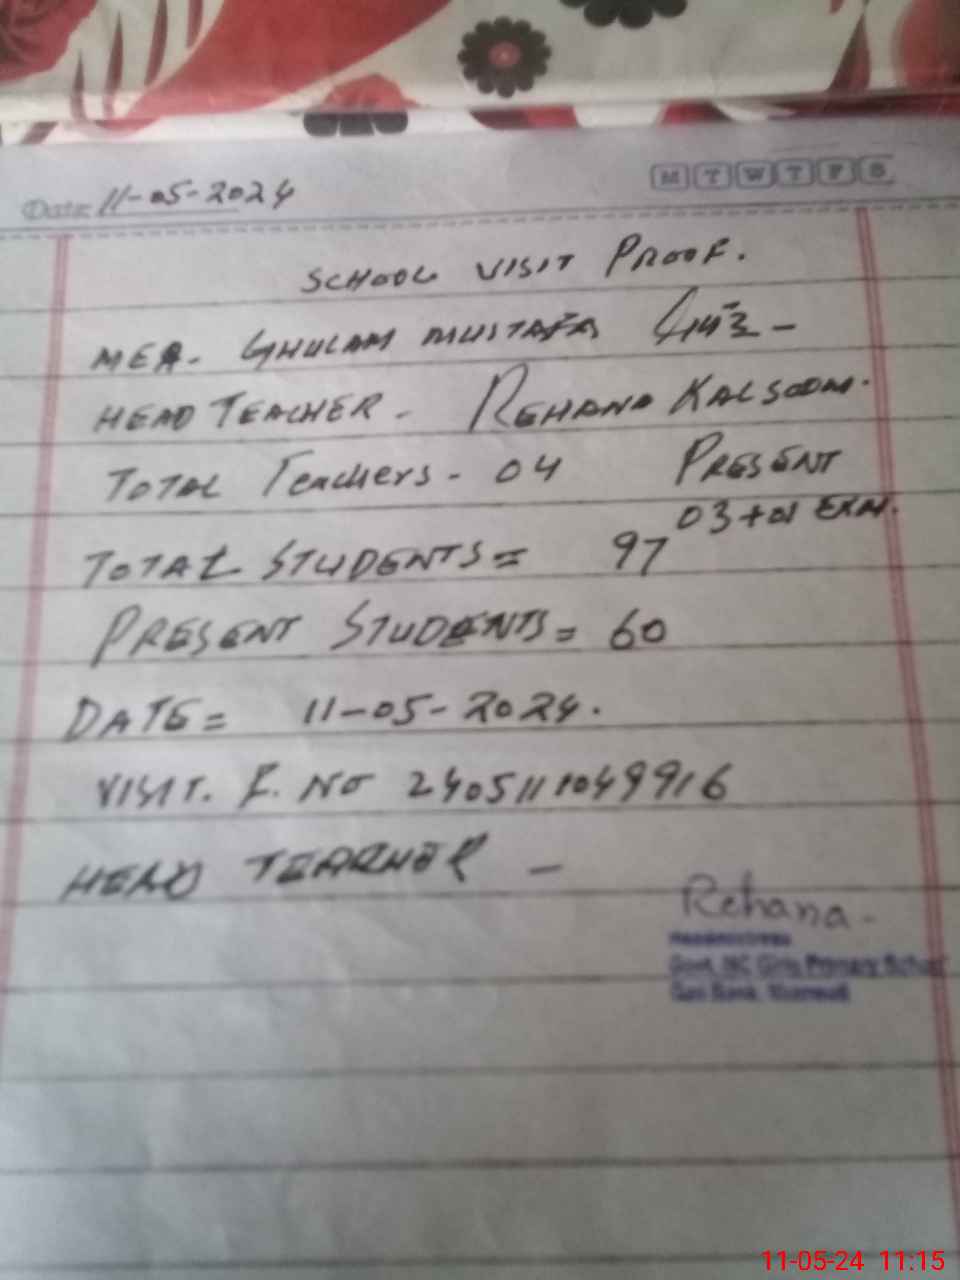 M T W T F S
Date: 11-05-2024
SCHOOL VISIT PROOF.
MEA. GHULAM MUSTAFA
HEAD TEACHER - REHANA KALSOOM.
TOTAL Teachers - 04 PRESENT
03+01 EXM.
TOTAL STUDENTS = 97
PRESENT STUDENTS = 60
DATE = 11-05-2024.
VISIT. F. NO 2405111049916
HEAD TEARHER -
Rehana -
Headmistress
Govt. MC Girls Primary School
11-05-24 11:15